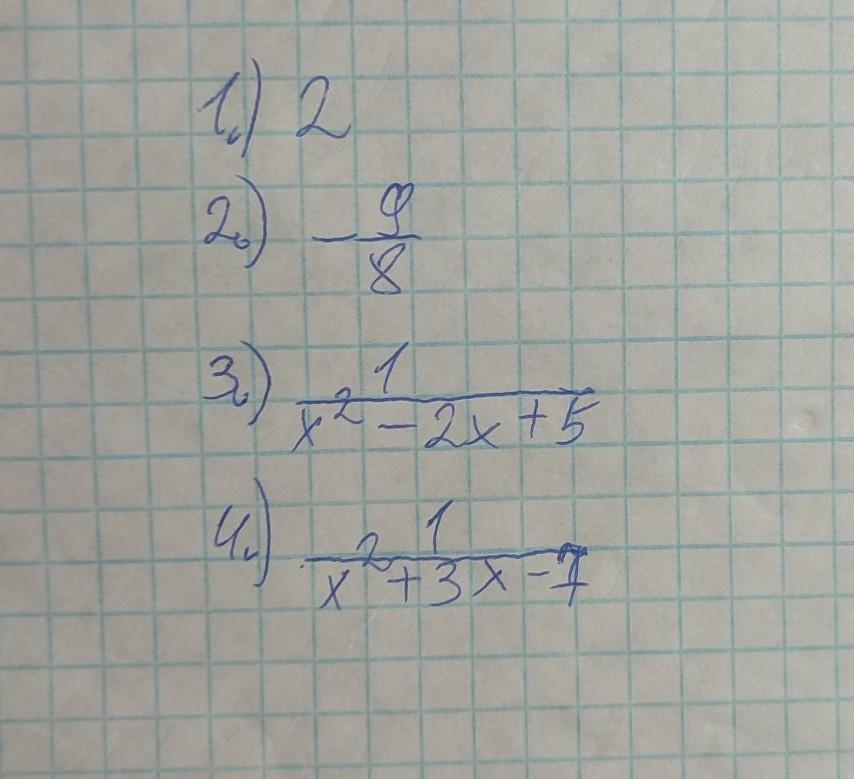 1.) 2
2.) - 9/8
3.) 1/(x² - 2x + 5)
4.) 1/(x² + 3x - 7)